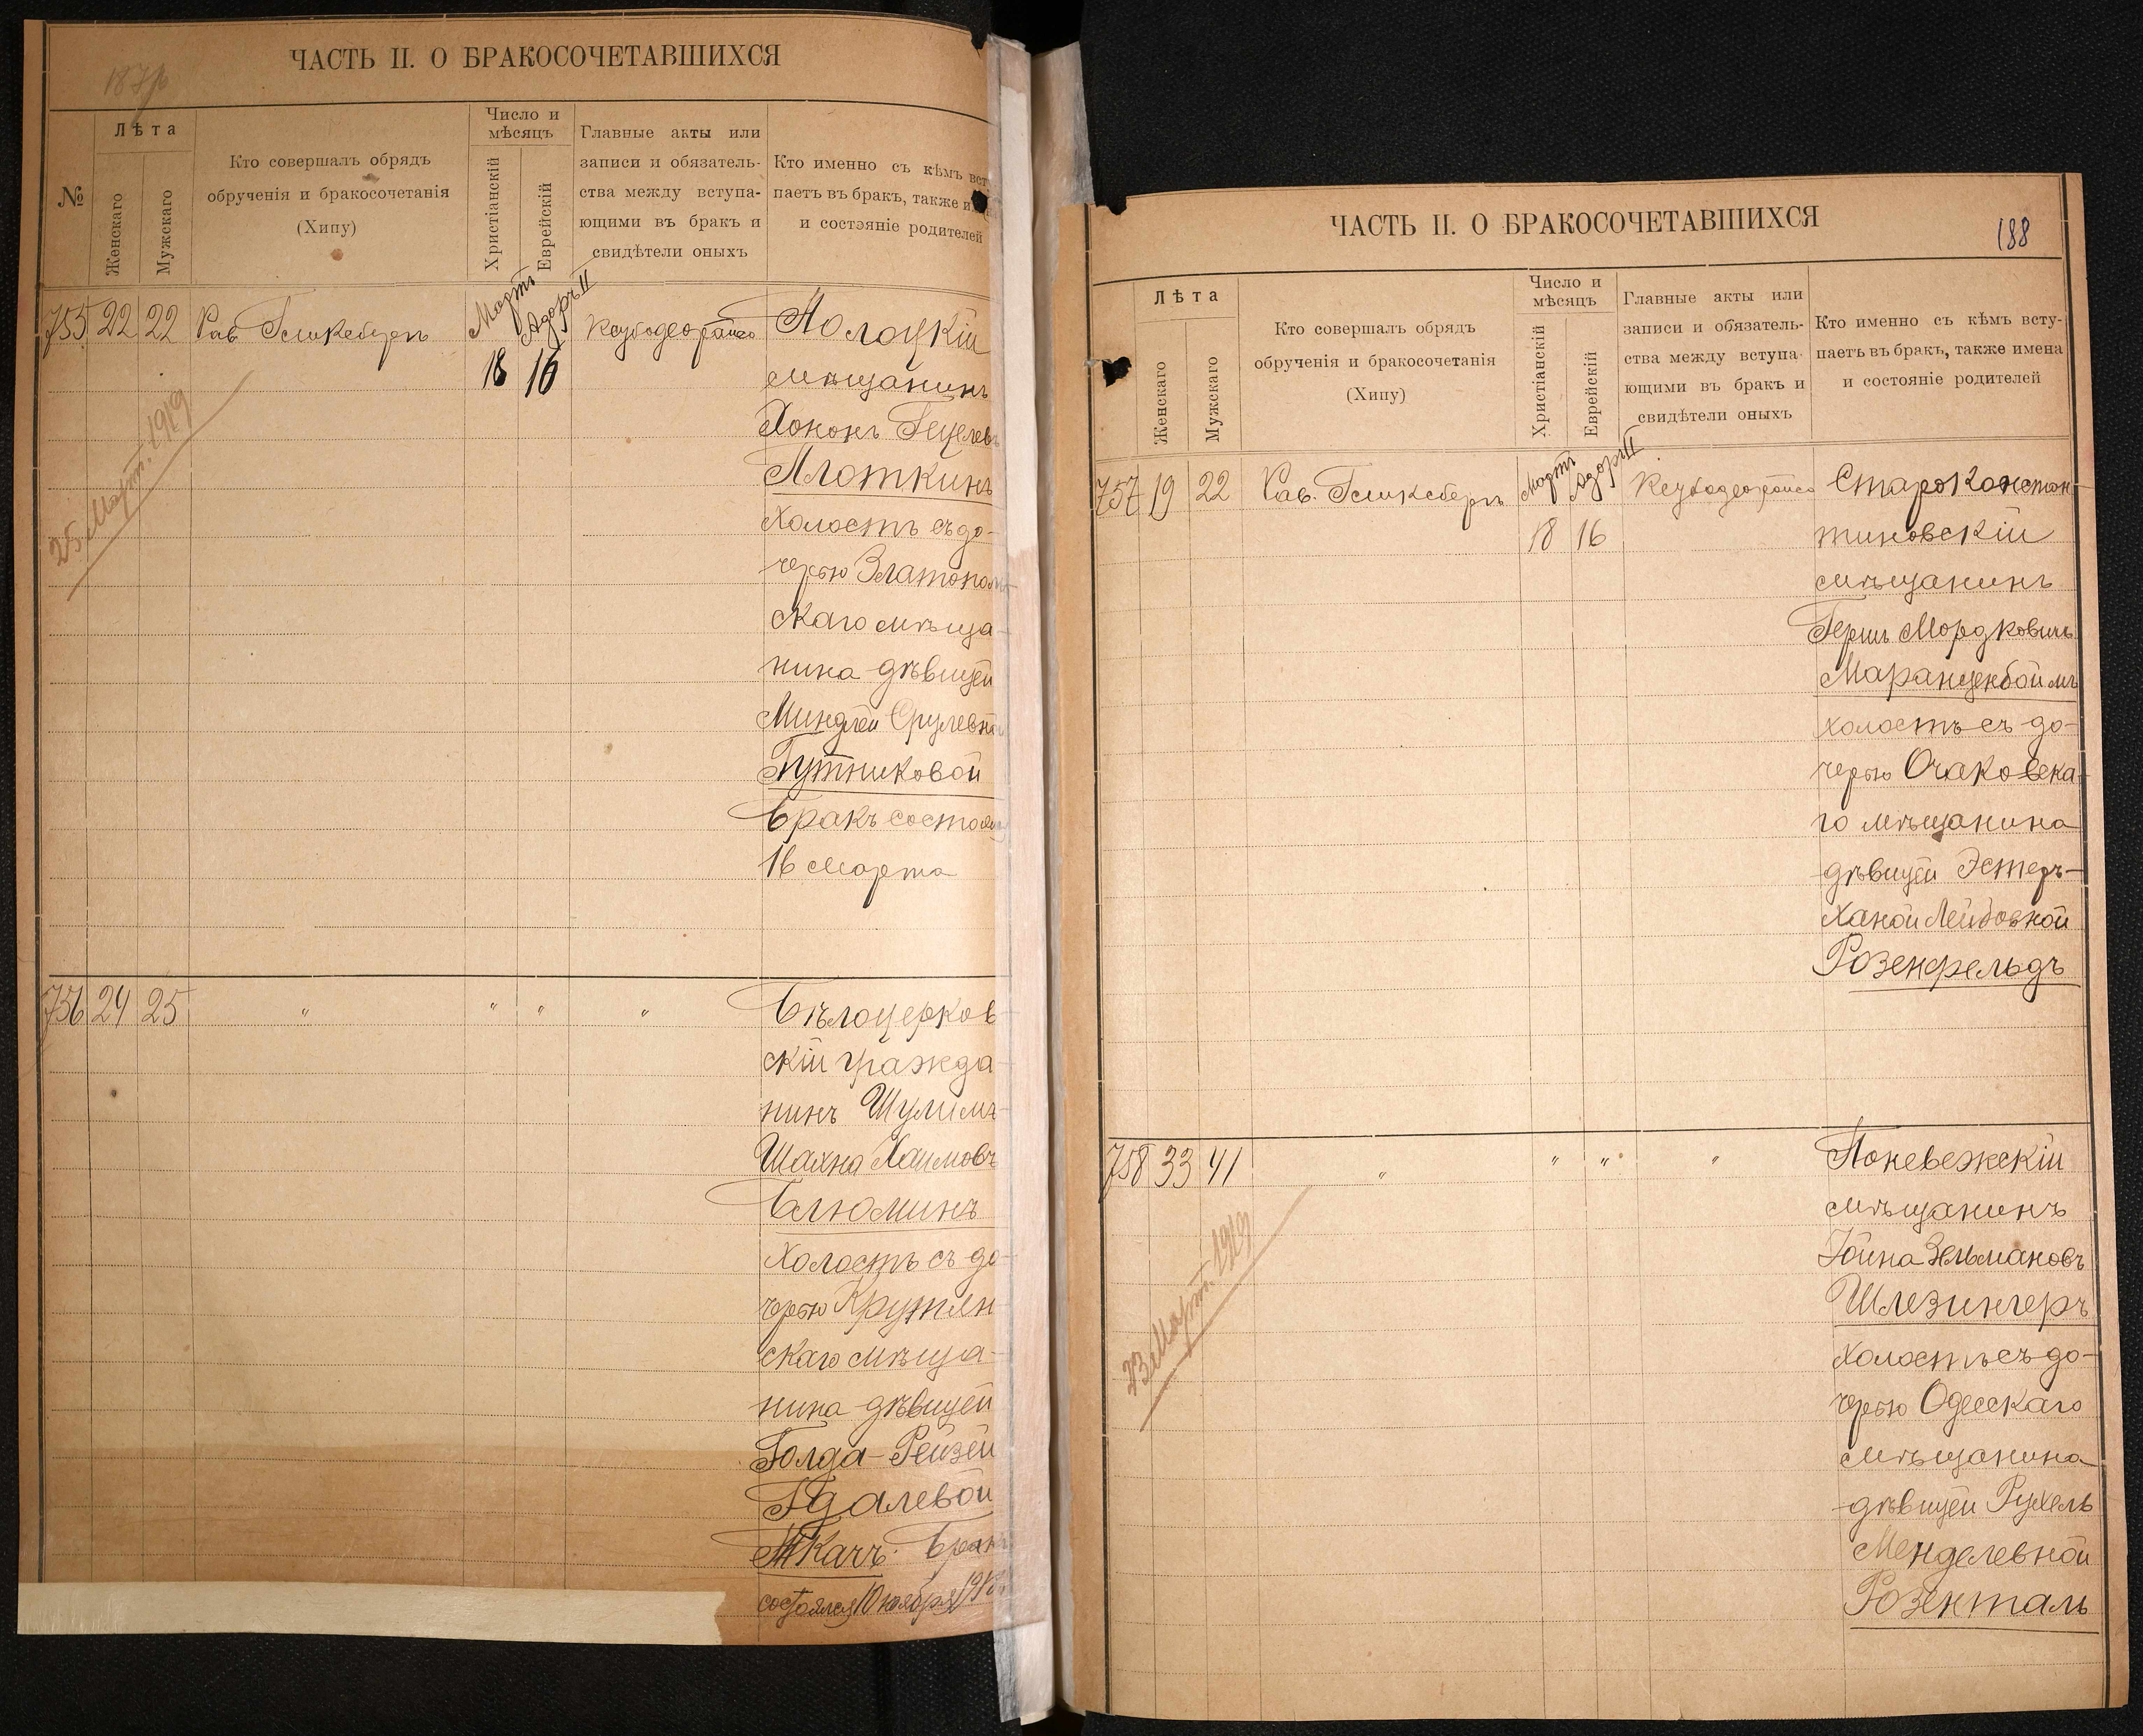 ЧАСТЬ II. О БРАКОСОЧЕТАВШИХСЯ
№
Лѣта
Женскаго
Мужскаго
Кто совершалъ обрядъ
обрученія и бракосочетанія
(Хипу)
Число и
мѣсяцъ
Христіанскій
Еврейскій
Главные акты или
записи и обязатель-
ства между вступа-
ющими въ бракъ и
свидѣтели оныхъ
Кто именно съ кѣмъ вст
паетъ въ бракъ, также и
и состояніе родителей
755 22 22 Рав. Гликсбергъ
Мартъ
Адоръ II
18 16
Полоцкій
мѣщанинъ
Хононъ Гецелевъ
Плоткинъ
холостъ съ до-
черью Златополь-
скаго мѣща-
нина дѣвицей
Миндлей Срулевной
Гутниковой
Бракъ состоялся
16 Марта
25 Март. 1919
756 24 25 " " " "
Бѣлоцерков-
скій гражда-
нинъ Шулимъ-
Шахна Хаимовъ
Блюминъ
холостъ съ до-
черью Крутян-
скаго мѣща-
нина дѣвицей
Голда-Рейзей
Гдалевой
Ткачъ. Бракъ
состоялся 10 ноября
ЧАСТЬ II. О БРАКОСОЧЕТАВШИХСЯ
188
Лѣта
Женскаго
Мужскаго
Кто совершалъ обрядъ
обрученія и бракосочетанія
(Хипу)
Число и
мѣсяцъ
Христіанскій
Еврейскій
Главные акты или
записи и обязатель-
ства между вступа-
ющими въ бракъ и
свидѣтели оныхъ
Кто именно съ кѣмъ всту-
паетъ въ бракъ, также имена
и состояніе родителей
757 19 22 Рав. Гликсбергъ
Мартъ
Адоръ II
18 16
Староконстан-
тиновскій
мѣщанинъ
Гершъ Мордковичъ
Маранценбоймъ
холостъ съ до-
черью Очаковска-
го мѣщанина
дѣвицей Эстеръ-
Ханой Лейбовной
Розенфельдъ
758 33 41 " " " "
Поневежскій
мѣщанинъ
Іойна Зельмановъ
Шлезингеръ
холостъ съ до-
черью Одесскаго
мѣщанина
дѣвицей Рухель
Менделевной
Розенталь
23 Март. 1919